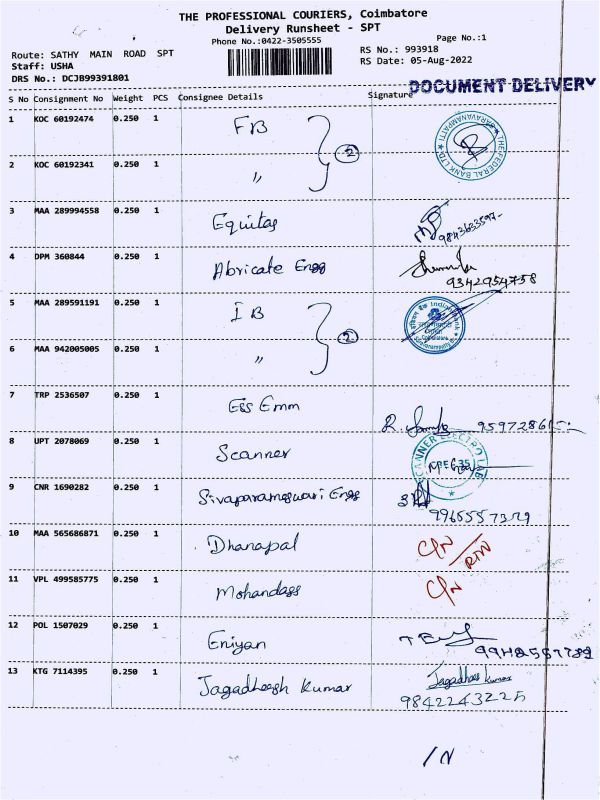 THE PROFESSIONAL COURIERS, Coimbatore
Delivery Runsheet - SPT
Phone No.:0422-3505555 Page No.:1
Route: SATHY MAIN ROAD SPT RS No.: 993918
Staff: USHA RS Date: 05-Aug-2022
DRS No.: DCJB99391801
DOCUMENT DELIVERY
S No Consignment No Weight PCS Consignee Details Signature
1 KOC 60192474 0.250 1 FB
THE FEDERAL BANK LTD. SARAVANAMPATTI
2 KOC 60192341 0.250 1 〃 2
3 MAA 289994558 0.250 1 Equitas
4 DPM 360844 0.250 1 Abricate Engg
9342954758
5 MAA 289591191 0.250 1 IB
Indian Bank
6 MAA 942005005 0.250 1 〃 2
7 TRP 2536507 0.250 1 Ess Emm
8 UPT 2078069 0.250 1 Scanner
SCANNER ELECTRO LAB
9 CNR 1690282 0.250 1 Sivaparameswari Engg
10 MAA 565686871 0.250 1 Dhanapal C/N RTN
11 VPL 499585775 0.250 1 Mohandass C/N
12 POL 1507029 0.250 1 Eniyan
13 KTG 7114395 0.250 1 Jagadheesh Kumar Jagadhees Kumar
9842243225